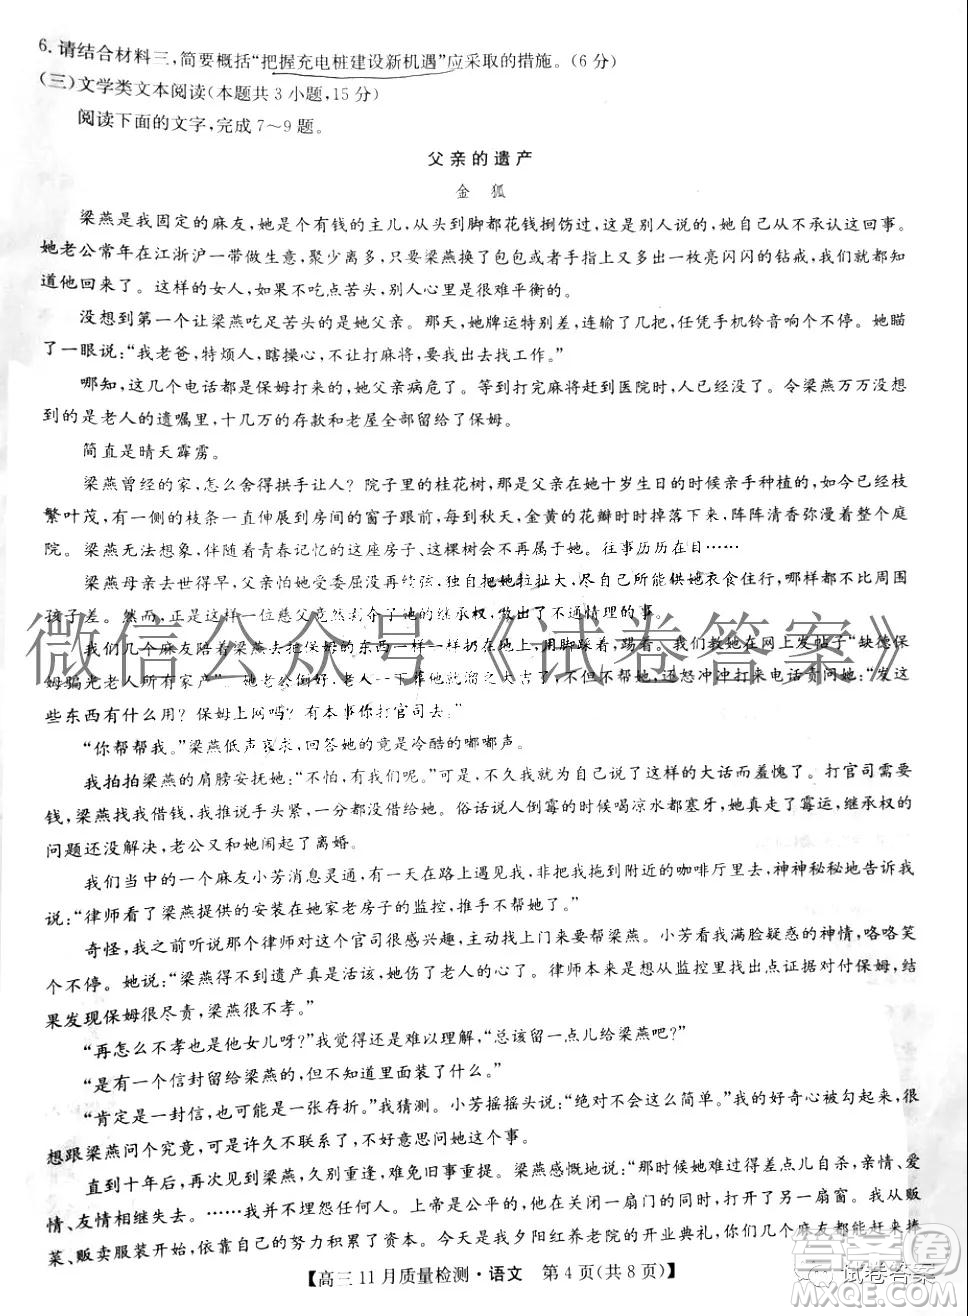 6. 请结合材料三,简要概括“把握充电桩建设新机遇”应采取的措施。(6 分)
(三)文学类文本阅读(本题共 3 小题,15 分)
阅读下面的文字,完成 7～9 题。
父亲的遗产
金 狐
梁燕是我固定的麻友,她是个有钱的主儿,从头到脚都花钱捯饬过,这是别人说的,她自己从不承认这回事。
她老公常年在江浙沪一带做生意,聚少离多,只要梁燕换了包包或者手指上多出一枚亮闪闪的钻戒,那就是老公回来
知道他来过了。这样的女人,如果不吃点苦头,别人心里是很难平衡的。
没想到第一个让梁燕吃足苦头的是她父亲。那天,她牌运特别差,连输了几把,任凭手机铃音响个不停。她瞄
了一眼说:“我老爸,特烦人,瞎操心,不让打麻将,要我出去找工作。”
哪知,这几个电话都是保姆打来的,她父亲病危了。等到打完麻将赶到医院时,人已经没了。令梁燕万万没想
到的是老人的遗嘱里,十几万的存款和老屋全部留给了保姆。
简直是晴天霹雳。
梁燕曾经的家,怎么舍得拱手让人? 院子里的桂花树,那是父亲在她十岁生日的时候亲手种植的,如今已经枝
繁叶茂,有一侧的枝条一直伸展到房间的窗子跟前,每到秋天,金黄的花瓣时时掉落下来,阵阵清香弥漫着整个庭
院。梁燕无法想象,伴随着青春记忆的这座房子、这棵树会不再属于她。往事历历在目……
梁燕母亲去世得早,父亲怕她受委屈没再续弦,独自把她拉扯大,尽自己所能供她衣食无忧,不比周围
孩子差。然而,正是这样一位慈父竟然剥夺了她的继承权,做出了不通情理的事。
我们几个麻友陪着梁燕去把保姆的东西一样一样扔出去,用脚踩,用手撕。我们教她在网上发帖子“缺德保
姆骗光老人所有家产”。她老公倒好,老人一下葬他就溜之大吉了,不帮忙不说,还怒冲冲打来电话责问她:“发这
些东西有什么用? 保姆上网吗? 有本事你打官司去。”
“你帮帮我。”梁燕低声哀求,回答她的竟是冷酷的嘟嘟声。
我拍拍梁燕的肩膀安抚她:“不怕,有我们呢。”可是,不久我就为自己说了这样的大话而羞愧了。打官司需要
钱,梁燕找我借钱,我推说手头紧,一分都没借给她。俗话说人倒霉的时候喝凉水都塞牙,她真走了霉运,继承权的
问题还没解决,老公又和她闹起了离婚。
我们当中的一个麻友小芳消息灵通,有一天在路上遇见我,非把我拖到附近的咖啡厅里去,神神秘秘地告诉我
说:“律师看了梁燕提供的安装在她家老房子的监控,推手不帮她了。”
奇怪,我之前听说那个律师对这个官司很感兴趣,主动找上门来要帮梁燕。小芳看我满脸疑惑的神情,咯咯笑
个不停。她说:“梁燕得不到遗产真是活该,她伤了老人的心了。律师本来是想从监控里找出点证据对付保姆,结
果发现保姆很尽责,梁燕很不孝。”
“再怎么不孝也是他女儿呀。”同样身为人母的我难以理解,“总该留一点儿给梁燕吧?”
“是有一个信封留给梁燕,但不知道为什么要十年后才能给她。”
“肯定是一封信,也可能是一张存折。”我猜测。小芳摇摇头说:“绝对不会这么简单。”我的好奇心爆棚,很
想跟梁燕问个究竟,可是许久不联系了,不好意思问她这个事。
直到十年后,再次遇到梁燕,久别重逢,难免旧事重提。梁燕感慨地说:“那时候她难过得差点儿自杀,亲情、爱
情、友情相继失去。……但是,上帝是公平的,他在关闭一扇门的同时,又打开了另一扇窗。我从贩
菜、贩卖服装开始,依靠自己的努力积累了资本。今天是我夕阳红养老院的开业典礼,你们几个麻友都能赶来捧
【高三 11 月质量检测·语文 第 4 页(共 8 页)】
微信公众号《试卷答案》
试卷答案
答案圈